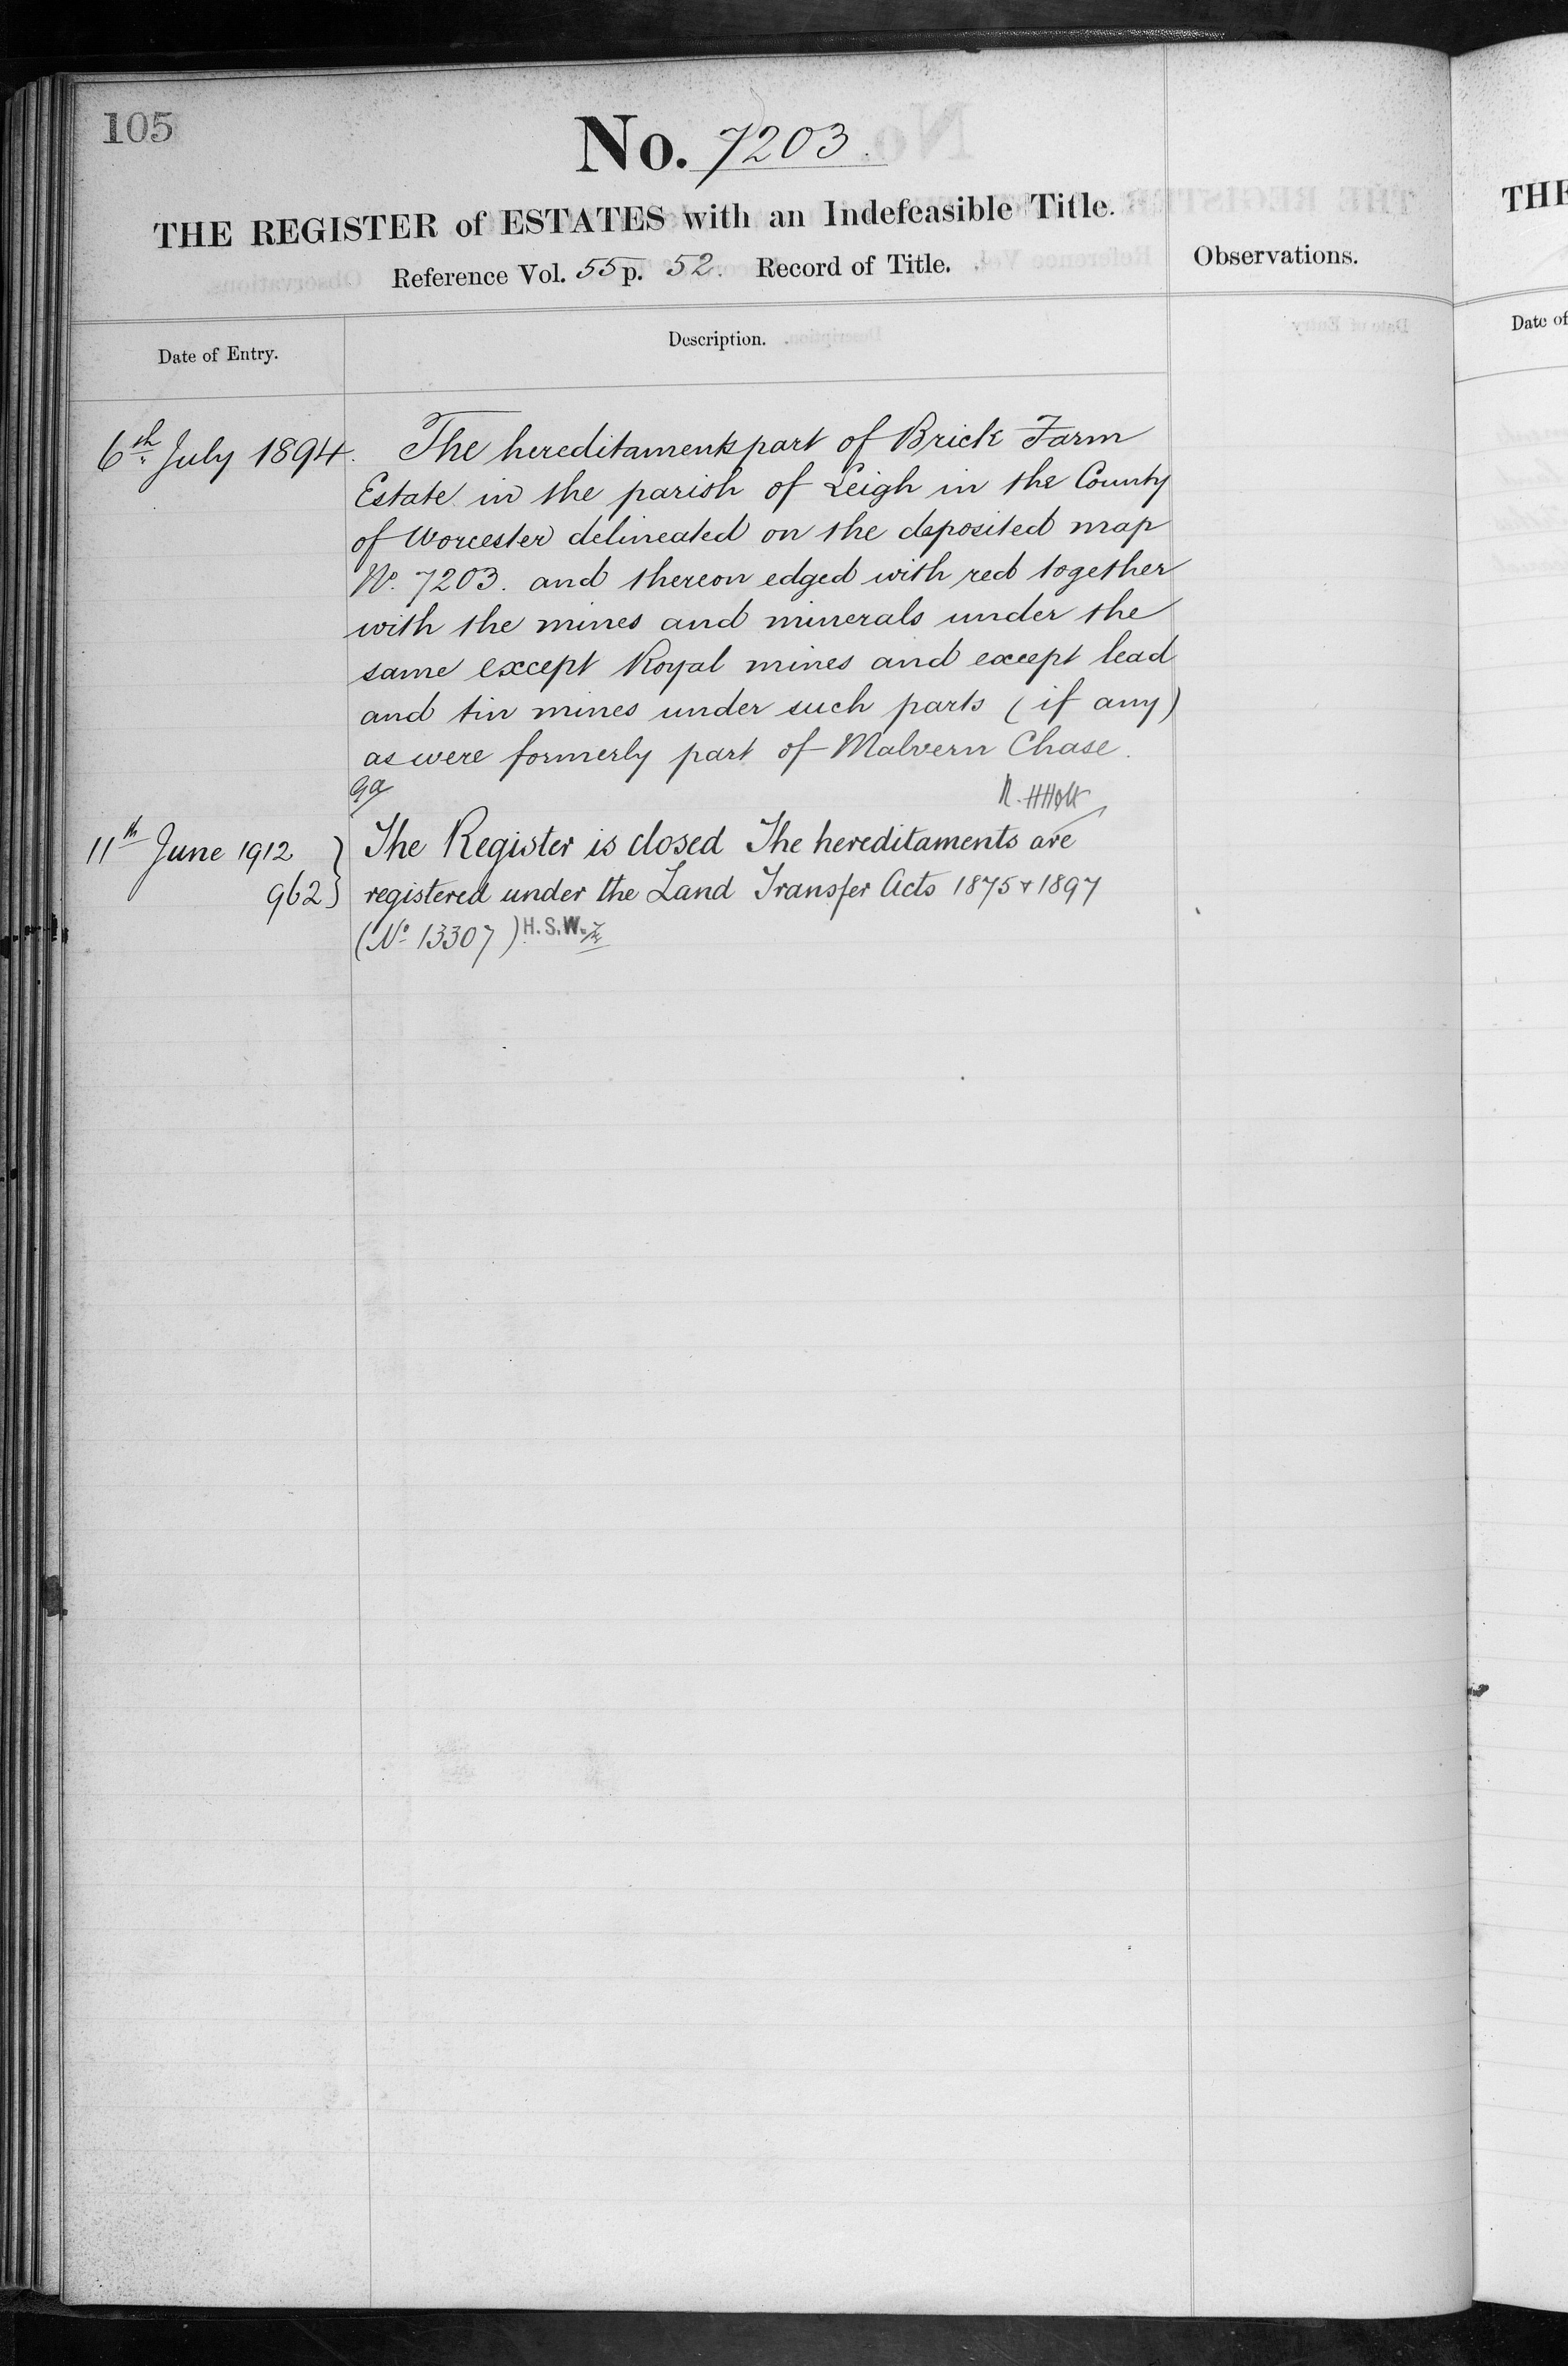 105
No. 7203.
THE REGISTER of ESTATES with an Indefeasible Title.
Reference Vol. 55 p. 52. Record of Title.
Observations.
Date of Entry.
Description.
6th July 1894.
The hereditaments part of Brick Farm
Estate in the parish of Leigh in the County
of Worcester delineated on the deposited map
No. 7203. and thereon edged with red together
with the mines and minerals under the
same except Royal mines and except lead
and tin mines under such parts (if any)
as were formerly part of Malvern Chase.
11th June 1912
962
The Register is closed The hereditaments are
registered under the Land Transfer Acts 1875 & 1897
(No 13307) H.S.W.
THE
Date of